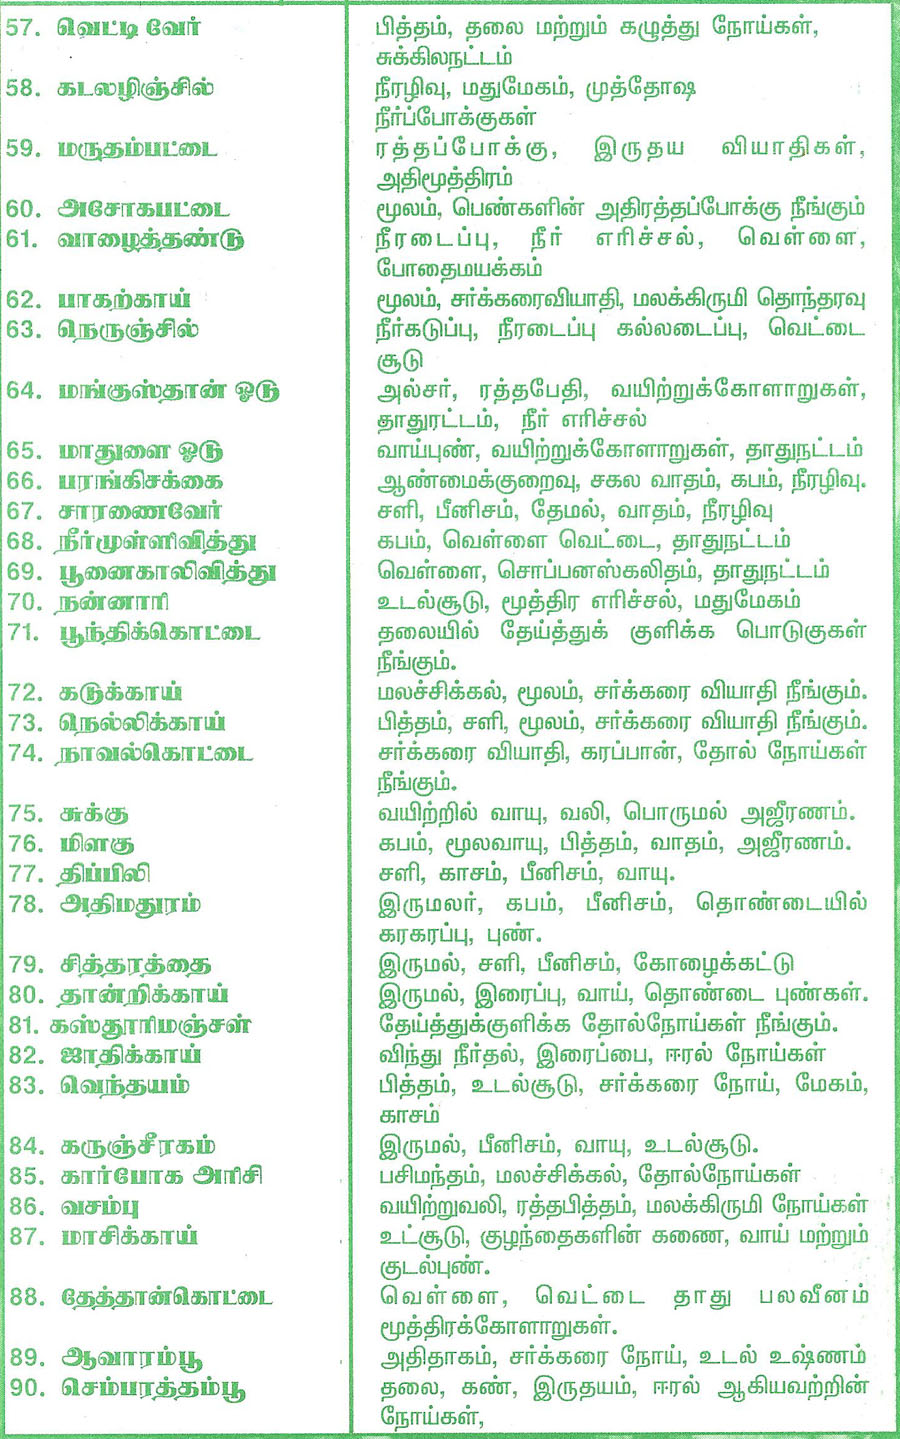 57. வெட்டி வேர் பித்தம், தலை மற்றும் கழுத்து நோய்கள்,
சுக்கிலநட்டம்
58. கடலழிஞ்சில் நீரழிவு, மதுமேகம், முத்தோஷ
நீர்ப்போக்குகள்
59. மருதம்பட்டை ரத்தப்போக்கு, இருதய வியாதிகள்,
அதிமூத்திரம்
60. அசோகபட்டை மூலம், பெண்களின் அதிரத்தப்போக்கு நீங்கும்
61. வாழைத்தண்டு நீரடைப்பு, நீர் எரிச்சல், வெள்ளை,
போதைமயக்கம்
62. பாகற்காய் மூலம், சர்க்கரைவியாதி, மலக்கிருமி தொந்தரவு
63. நெருஞ்சில் நீர்கடுப்பு, நீரடைப்பு கல்லடைப்பு, வெட்டை
சூடு
64. மங்குஸ்தான் ஓடு அல்சர், ரத்தபேதி, வயிற்றுக்கோளாறுகள்,
தாதுரட்டம், நீர் எரிச்சல்
65. மாதுளை ஓடு வாய்புண், வயிற்றுக்கோளாறுகள், தாதுநட்டம்
66. பரங்கிசக்கை ஆண்மைக்குறைவு, சகல வாதம், கபம், நீரழிவு.
67. சாரணைவேர் சளி, பீனிசம், தேமல், வாதம், நீரழிவு
68. நீர்முள்ளிவித்து கபம், வெள்ளை வெட்டை, தாதுநட்டம்
69. பூனைகாலிவித்து வெள்ளை, சொப்பனஸ்கலிதம், தாதுநட்டம்
70. நன்னாரி உடல்சூடு, மூத்திர எரிச்சல், மதுமேகம்
71. பூந்திக்கொட்டை தலையில் தேய்த்துக் குளிக்க பொடுகுகள்
நீங்கும்.
72. கடுக்காய் மலச்சிக்கல், மூலம், சர்க்கரை வியாதி நீங்கும்.
73. நெல்லிக்காய் பித்தம், சளி, மூலம், சர்க்கரை வியாதி நீங்கும்.
74. நாவல்கொட்டை சர்க்கரை வியாதி, கரப்பான், தோல் நோய்கள்
நீங்கும்.
75. சுக்கு வயிற்றில் வாயு, வலி, பொருமல் அஜீரணம்.
76. மிளகு கபம், மூலவாயு, பித்தம், வாதம், அஜீரணம்.
77. திப்பிலி சளி, காசம், பீனிசம், வாயு.
78. அதிமதுரம் இருமலர், கபம், பீனிசம், தொண்டையில்
கரகரப்பு, புண்.
79. சித்தரத்தை இருமல், சளி, பீனிசம், கோழைக்கட்டு
80. தான்றிக்காய் இருமல், இரைப்பு, வாய், தொண்டை புண்கள்.
81. கஸ்தூரிமஞ்சள் தேய்த்துக்குளிக்க தோல்நோய்கள் நீங்கும்.
82. ஜாதிக்காய் விந்து நீர்தல், இரைப்பை, ஈரல் நோய்கள்
83. வெந்தயம் பித்தம், உடல்சூடு, சர்க்கரை நோய், மேகம்,
காசம்
84. கருஞ்சீரகம் இருமல், பீனிசம், வாயு, உடல்சூடு.
85. கார்போக அரிசி பசிமந்தம், மலச்சிக்கல், தோல்நோய்கள்
86. வசம்பு வயிற்றுவலி, ரத்தபித்தம், மலக்கிருமி நோய்கள்
87. மாசிக்காய் உட்சூடு, குழந்தைகளின் கணை, வாய் மற்றும்
குடல்புண்.
88. தேத்தான்கொட்டை வெள்ளை, வெட்டை தாது பலவீனம்
மூத்திரக்கோளாறுகள்.
89. ஆவாரம்பூ அதிதாகம், சர்க்கரை நோய், உடல் உஷ்ணம்
90. செம்பரத்தம்பூ தலை, கண், இருதயம், ஈரல் ஆகியவற்றின்
நோய்கள்,